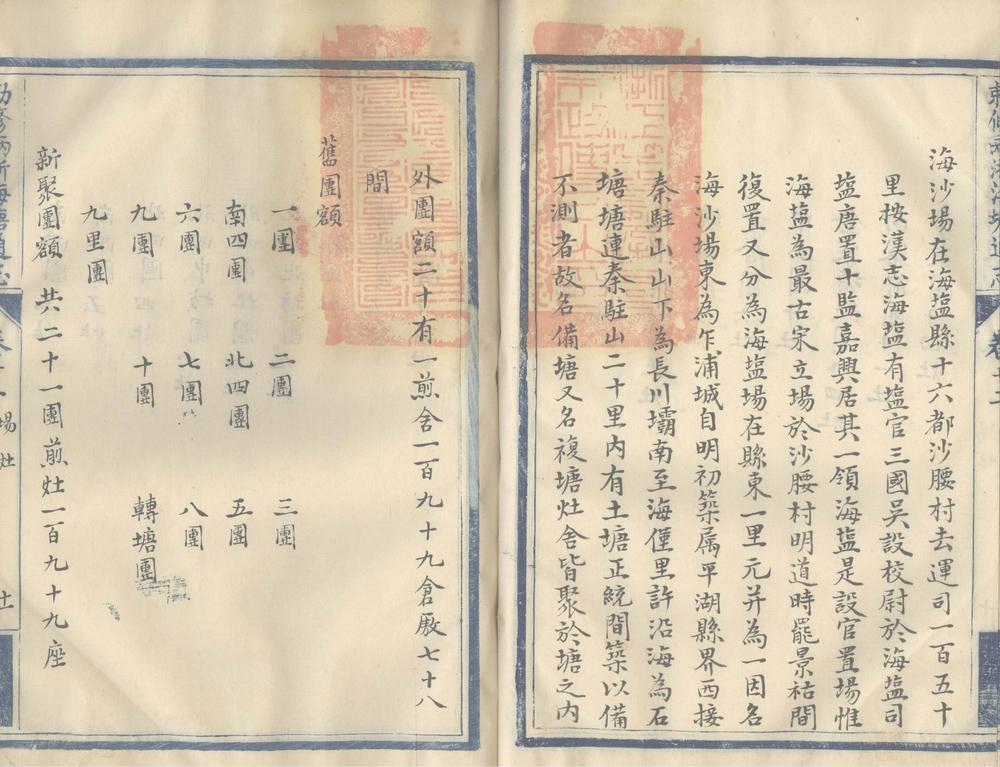 海沙場在海塩縣十六都沙腰村去運司一百五十
里按漢志海塩有塩官三國吳設校尉於海塩司
塩唐置十監嘉興居其一領海塩是設官置場惟
海塩為最古宋立場於沙腰村明道時罷景祐間
復置又分為海塩場在縣東一里元并為一因名
海沙場東為乍浦城自明初築属平湖縣界西接
秦駐山山下為長川壩南至海僅里許沿海為石
塘塘連秦駐山二十里内有土塘正統間築以備
不測者故名備塘又名複塘灶舍皆聚於塘之内
外團額二十有一煎舍一百九十九倉厫七十八
間
舊團額
一團 二團 三團
南四團 北四團 五團
六團 七團 八團
九團 十團 轉塘團
九里團
新聚團額共二十一團煎灶一百九十九座
場灶